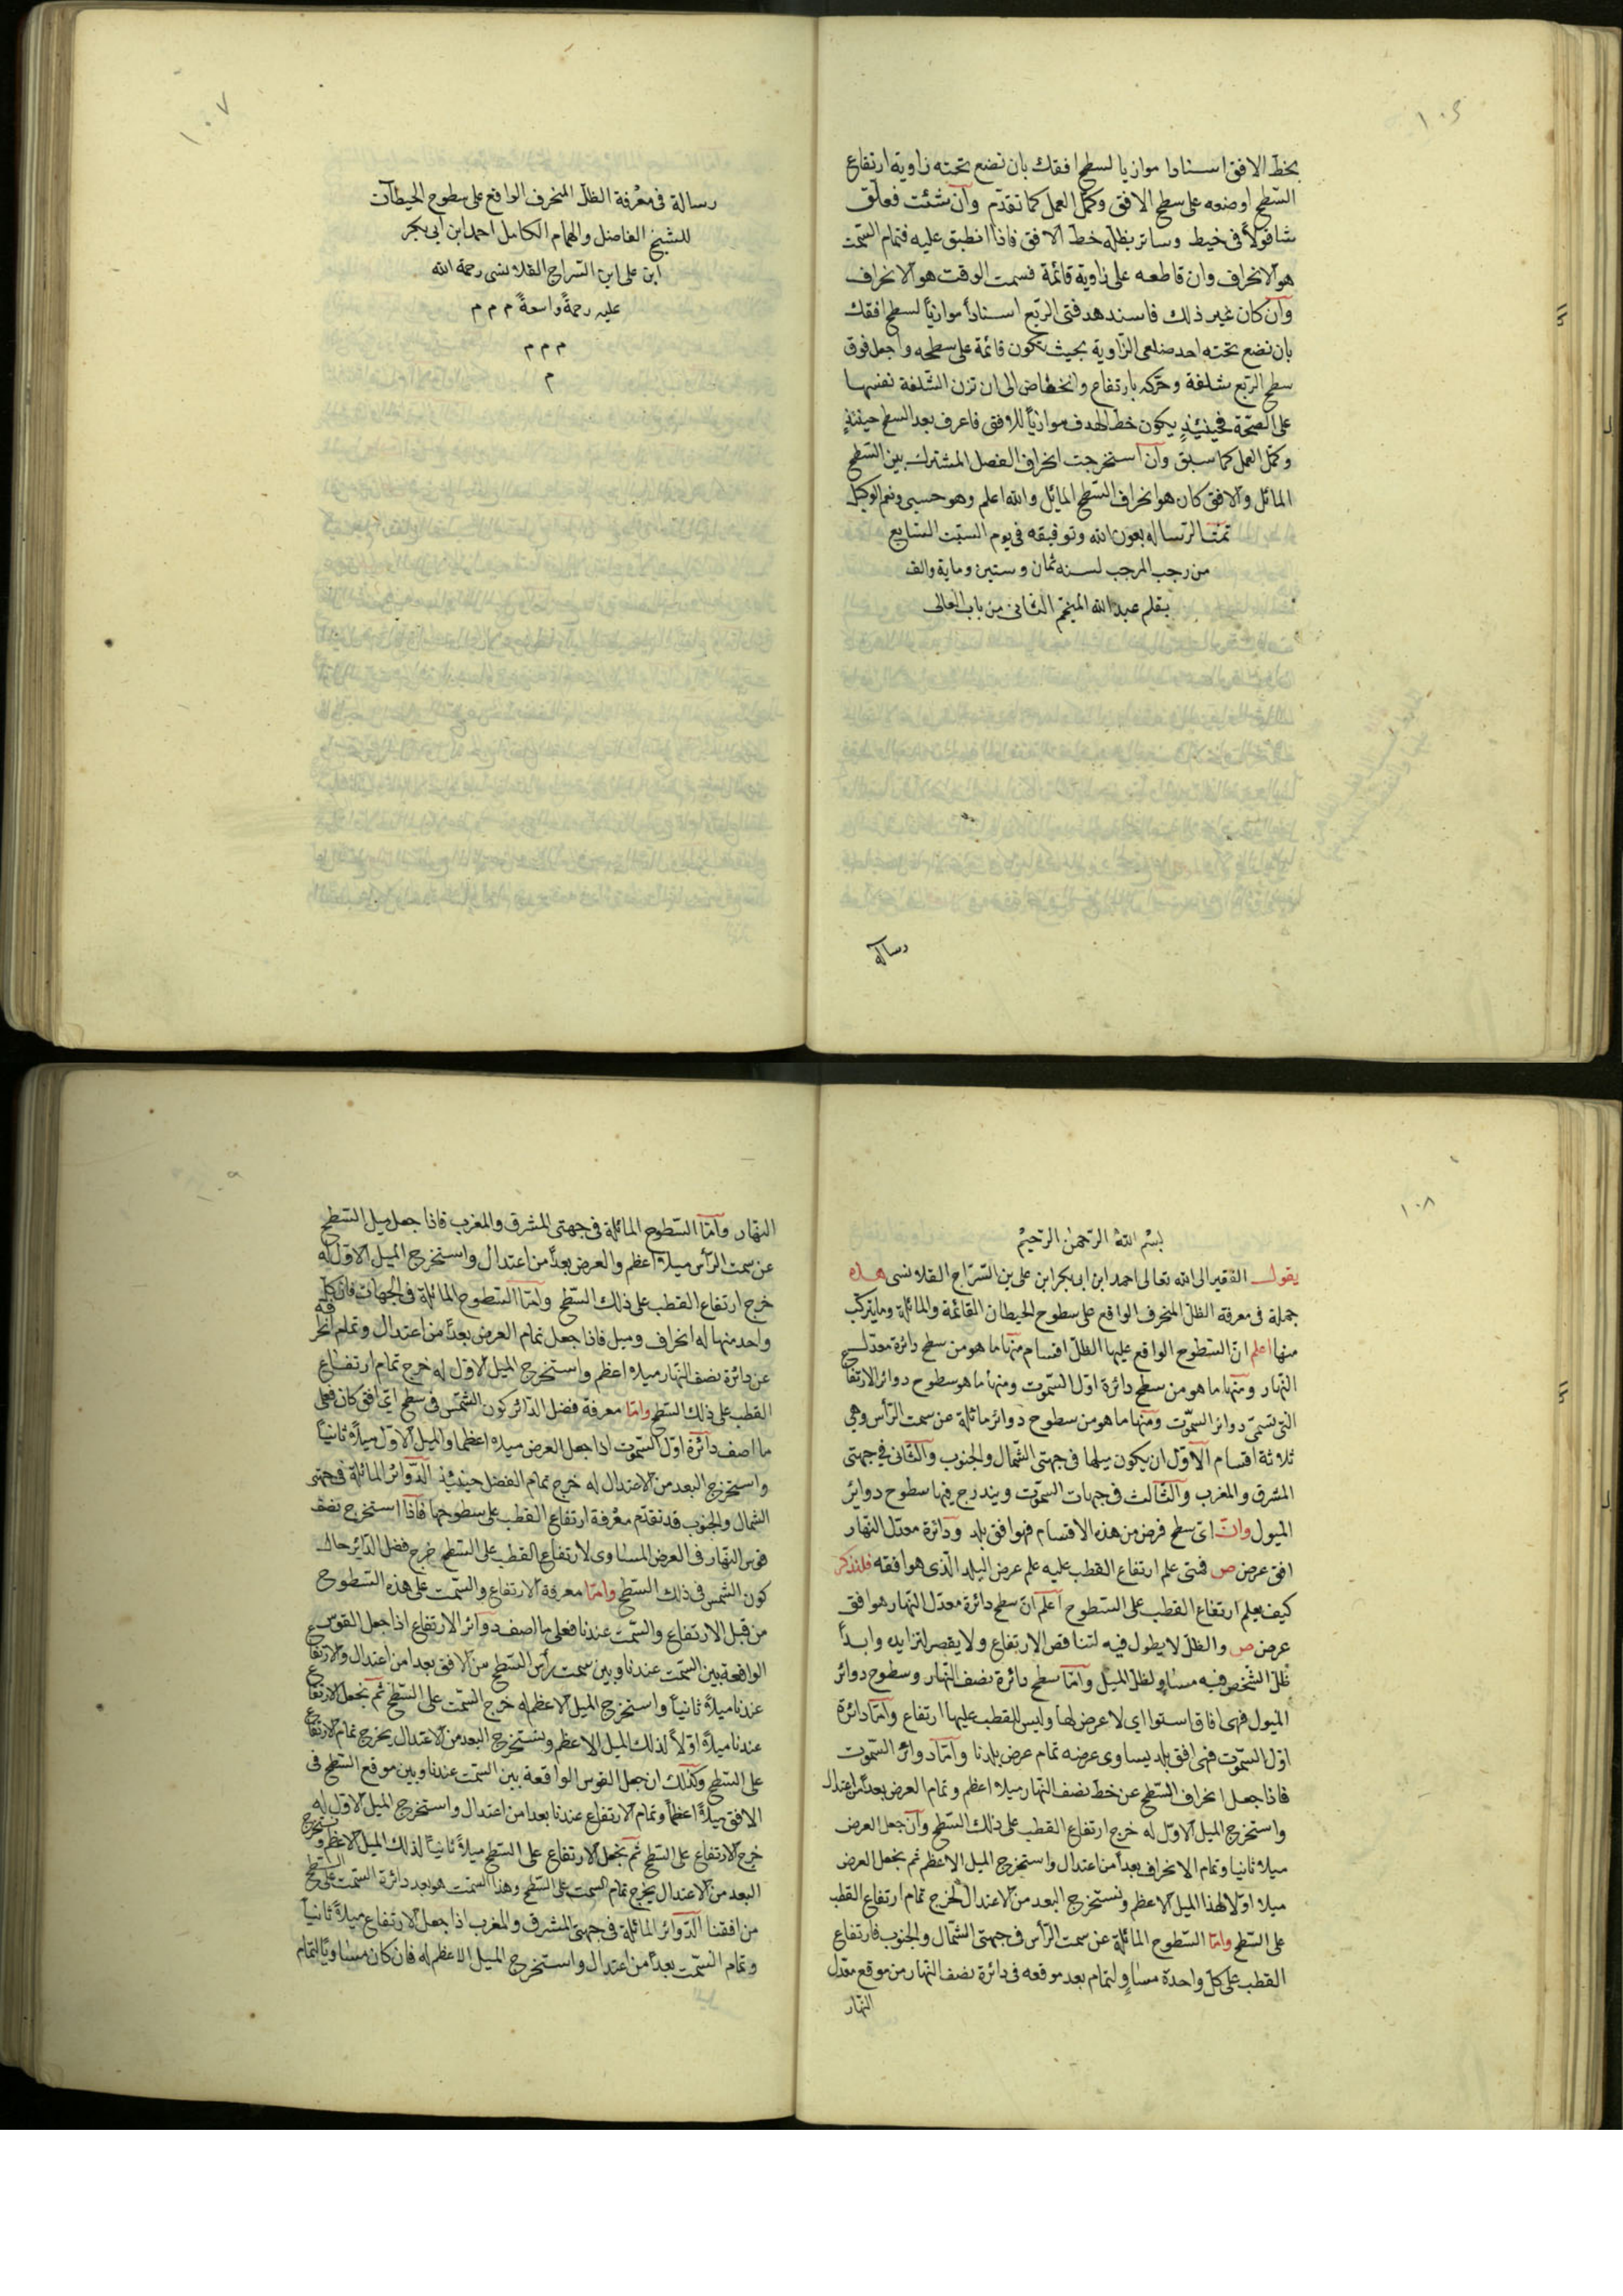 ١٠٦
بخط الافق اسنادا موازيا لسطح افقك بان نضع تحته زاوية ارتفاع
السّطح اوضعه على سطح الافق وكمّل العمل كما تقدّم وآن شئت فعلّق
شاقولاً فى خيط وساتر بظلّه خطّ الافق فاذا انطبق عليه فتمام السّمت
هو الانحراف وان قاطعه على زاوية قائمة فسمت الوقت هو الانحراف
وآن كان غير ذلك فاسند هدفتى الرّبع اسناداً موازياً لسطح افقك
بان نضع تحته احد ضلعى الزّاوية بحيث يكون قائمة على سطحه واجعل فوق
سطح الربع شلغة وحرّكه بارتفاع وانخفاض الى ان تزن الشّلغة نفسها
على الصحّة فحينئذٍ يكون خطّ الهدف موازياً للافق فاعرف بعد السطح حينئذٍ
وكمّل العمل كما سبق وآن استخرجت انحراف الفصل المشترك بين السّطح
المائل والافق كان هو انحراف السّطح المائل والله اعلم وهو حسبى ونعم الوكيل
تمّت الرّسالة بعون الله وتوفيقه فى يوم السّبت السّابع
من رجب المرجب لسنة ثمان وستين وماية والف
بقلم عبد الله المنجّم الثّانى من باب العالى
رسالة
١٠٧
رسالة فى معْرفة الظلّ المنحرف الواقع على سطوح الحيطآت
للشيخ الفاضل والهمام الكامل احمد ابن ابى بكر
ابن على ابن السّراج القلانسى رحمة الله
عليه رحمةً واسعةً م م م
م م م
م
١٠٨
بسْم اللهْ الرّحمٰن الرّحيمْ
يقول الفقير الى الله تعالى احمد ابن ابى بكر ابن على بن السّرّاج القلانسى هذه
جملة فى معرفة الظلّ المنحرف الواقع على سطوح الحيطان القائمة والمائلة وما يتركّب
منها اعلم انّ السّطوح الواقع عليها الظلّ اقسام منها ما هو من سطح دائرة معدّل
النهار ومنها ما هو من سطح دائرة اوّل السّموت ومنها ما هو سطوح دوائر الارتفاع
التى تسمّى دوائر السّموت ومنها ما هو من سطوح دوائر مائلة عن سمت الرّأس وهى
ثلاثة اقسام الاوّل ان يكون ميلها فى جهتى الشّمال والجنوب والثّانى فى جهتى
المشرق والمغرب والثّالث فى جهات السموت ويندرج فيها سطوح دوائر
الميول وانّ اىّ سطح فرض من هذه الاقسام فهو افق بلد ودائرة معدّل النهار
افق عرض ص فمتى علم ارتفاع القطب عليه علم عرض البلد الّذى هو افقه فلنذكر
كيف يعلم ارتفاع القطب على السّطوح اعلم انّ سطح دائرة معدّل النهار هو افق
عرض ص والظلّ لا يطول فيه لتناقص الارتفاع ولا يقصر لتزايده وابداً
ظلّ الشّخص فيه مساوٍ لظلّ الميل وآمّا سطح دائرة نصف النّهار وسطوح دوائر
الميول فهى افاق استوا اى لا عرض لها وليس للقطب عليها ارتفاع وآمّا دائرة
اوّل السّموت فهى افق بلد يساوى عرضه تمام عرض بلدنا وآمّا دوائر السّموت
فاذا جعل انحراف السّطح عن خطّ نصف النهار ميلا اعظم وتمام العرض بعداً من اعتدال
واستخرج الميل الاوّل له خرج ارتفاع القطب على ذلك السّطح وآن جعل العرض
ميلا ثانيا وتمام الانحراف بعداً من اعتدال واستخرج الميل الاعظم ثم يجعل العرض
ميلا اوّلا لهذا الميل الاعظم ونستخرج البعد من الاعتدال لخرج تمام ارتفاع القطب
على السّطح وامّا السّطوح المائلة عن سمت الرّأس فى جهتى الشّمال والجنوب فارتفاع
القطب على كلّ واحدة مساوٍ لتمام بعد موقعه فى دائرة نصف النّهار من موقع معدّل
النّهار
١٠٩
النهار وآمّا السّطوح المائلة فى جهتى المشرق والمغرب فاذا جعل ميل السّطح
عن سمت الرّأس ميلاً اعظم والعرض بعداً من اعتدال واستخرج الميل الاوّل له
خرج ارتفاع القطب على ذلك السّطح وآمّا السّطوح المائلة فى الجهات فان كلّ
واحد منها له انحراف وميل فاذا جعل تمام العرض بعداً من اعتدال وتمام انحرافه
عن دائرة نصف النّهار ميلا اعظم واستخرج الميل الاوّل له خرج تمام ارتفاع
القطب على ذلك السّطح وامّا معرفة فضل الدّائر كون الشّمس فى سطح اىّ افق كان فعلى
ما اصف دآئرة اوّل السّموت اذا جعل العرض ميلا اعظما والميل الاوّل ميلاً ثانياً
واستخرج البعد من الاعتدال له خرج تمام الفضل حينئذ الدّوائر المائلة فى جهتى
الشمال والجنوب قد تقدّم معْرفة ارتفاع القطب على سطوحها فاذا استخرج نصف
قوس النّهار فى العرض المساوى لارتفاع القطب على السّطح خرج فضل الدّائر حال
كون الشّمس فى ذلك السّطح وامّا معرفة الارتفاع والسّمت على هذه السّطوح
من قبل الارتفاع والسّمت عندنا فعلى ما اصف دوآئر الارتفاع اذا جعل القوس
الواقعة بين السّمت عندنا وبين سمت رأس السّطح من الافق بعداً من اعتدال والارتفاع
عندنا ميلاً ثانياً واستخرج الميل الاعظم له خرج السّمت على السّطح ثم نجعل الارتفاع
عندنا ميلاً اوّلاً لذلك الميل الاعظم ونستخرج البعد من الاعتدال يخرج تمام الارتفاع
على السّطح وكذلك ان جعل القوس الواقعة بين السّمت عندنا وبين موقع السّطح فى
الافق ميلاً اعظماً وتمام الارتفاع عندنا بعدا من اعتدال واستخرج الميل الاوّل له
خرج الارتفاع على السّطح ثم نجعل الارتفاع على السّطح ميلاً ثانياً لذلك الميل الاعظم ونستخرج
البعد من الاعتدال يخرج تمام السمت على السّطح وهذا السّمت هو بعد دائرة السّمت على السّطح
من افقنا الدّوائر المائلة فى جهتى المشرق والمغرب اذا جعل الارتفاع ميلاً ثانياً
وتمام السّمت بعداً من اعتدال واستخرج الميل الاعظم له فان كان مساويًا لتمام